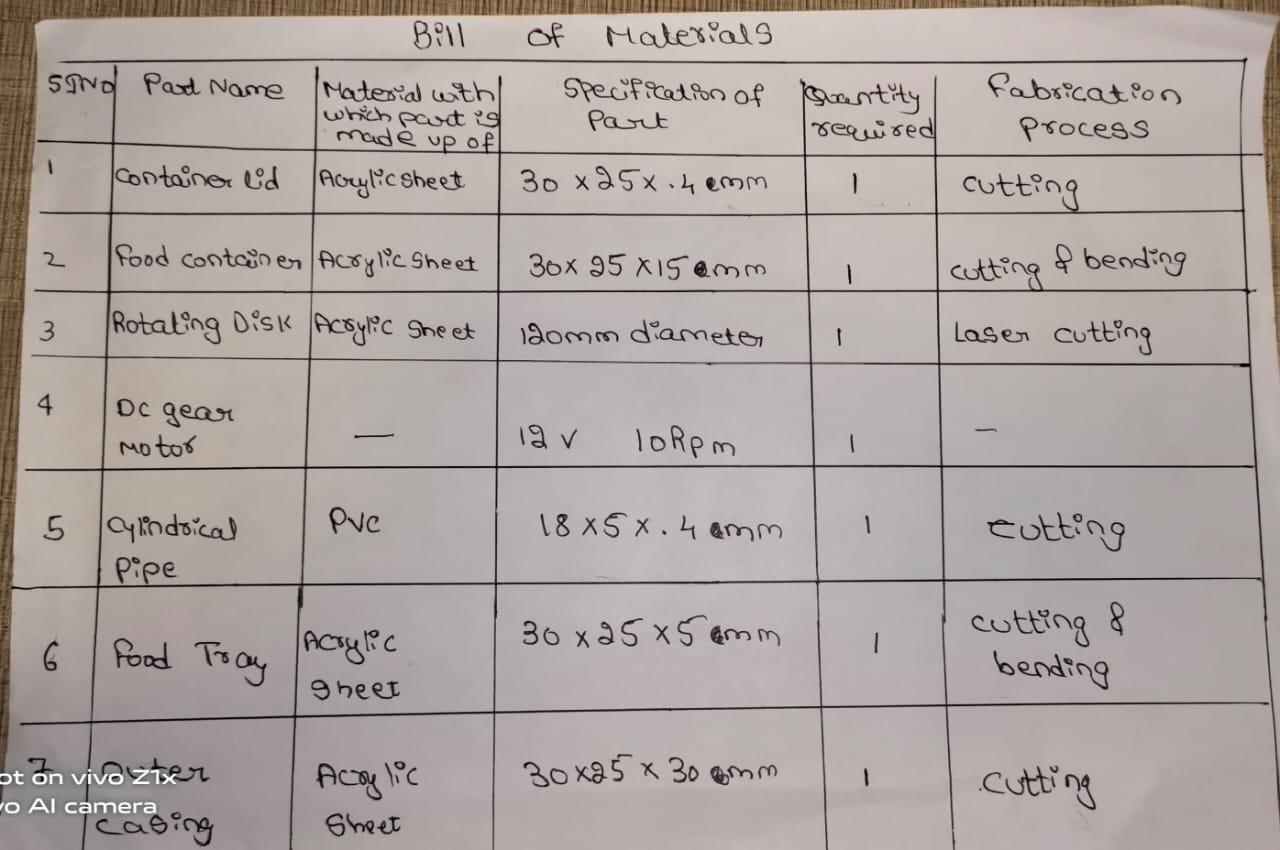 Bill of Materials
SJNO Part Name Material with which part is made up of Specification of Part Quantity required Fabrication Process
1 Container lid Acrylic sheet 30 x 25 x .4 cmm 1 cutting
2 food container Acrylic Sheet 30 x 25 x 15 cmm 1 cutting & bending
3 Rotating Disk Acrylic Sheet 120mm diameter 1 Laser cutting
4 DC gear Motor — 12 v 10 Rpm 1 —
5 Cylindrical Pipe PVC 18 x 5 x .4 cmm 1 cutting
6 food Tray Acrylic Sheet 30 x 25 x 5 cmm 1 cutting & bending
7 Outer casing Acrylic Sheet 30 x 25 x 30 cmm 1 cutting
ot on vivo Z1x
vo AI camera